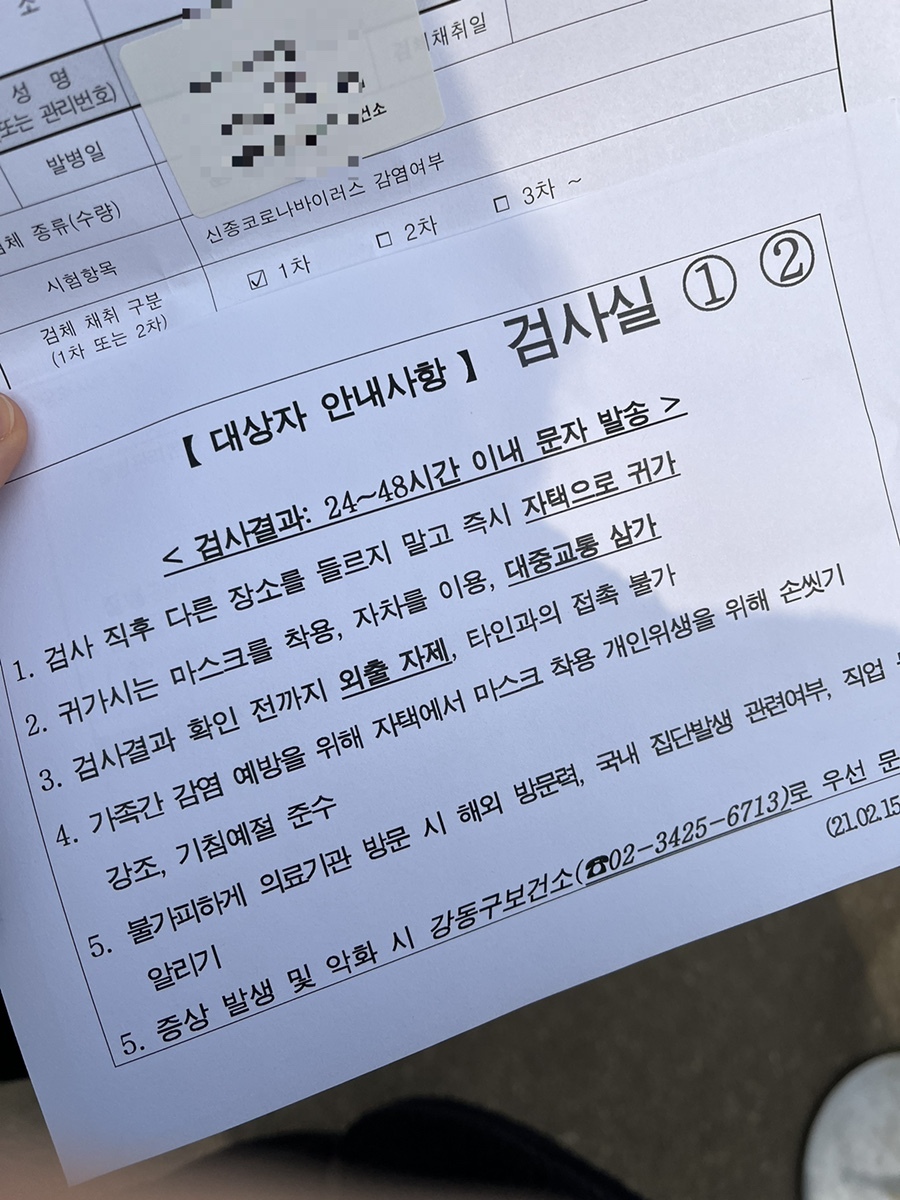 소
성 명
(또는 관리번호)
채취일
건소
발병일
체 종류(수량)
시험항목
신종코로나바이러스 감염여부
검체 채취 구분
(1차 또는 2차)
☑ 1차 □ 2차 □ 3차 ~
【 대상자 안내사항 】 검사실 ① ②
< 검사결과: 24~48시간 이내 문자 발송 >
1. 검사 직후 다른 장소를 들르지 말고 즉시 자택으로 귀가
2. 귀가시는 마스크를 착용, 자차를 이용, 대중교통 삼가
3. 검사결과 확인 전까지 외출 자제, 타인과의 접촉 불가
4. 가족간 감염 예방을 위해 자택에서 마스크 착용 개인위생을 위해 손씻기
강조, 기침예절 준수
5. 불가피하게 의료기관 방문 시 해외 방문력, 국내 집단발생 관련여부, 직업
알리기
5. 증상 발생 및 악화 시 강동구보건소(☎02-3425-6713)로 우선 문
(21.02.15